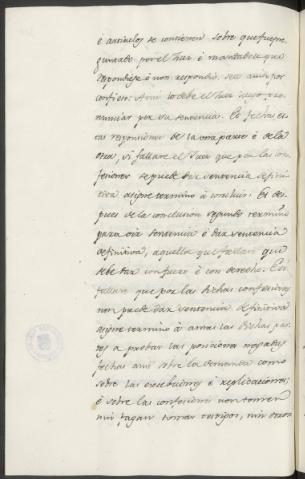 é articulos se contienen sobre que fue pre
guntado por el Juez é mandadole que
respondiese é non respondió. sea avido por
confieso. é assi lo debe el Juez luego pro
nunciar por su sentencia. Es fechas es
tas responsiones de la una parte é de la
otra, si fallare el Juez que por las con
fesiones se puede dar sentencia definiti
va asigne termino á concluir. Es des
pues de la conclusion asignado termino
para oir sentencia é dar sentencia
definitiva, aquella que fallare que
se debe dar confuero é con derecho. E si
fallare que por las dichas confesiones
non puede dar sentencia definitiva
asigne termino á amas las dichas par
tes a probar las posiciones negadas
fechas ansi sobre la demanda como
sobre las excebciones é replicaciones;
é sobre las confesiones non tomen
nin fagan tomar testigos, nin otra